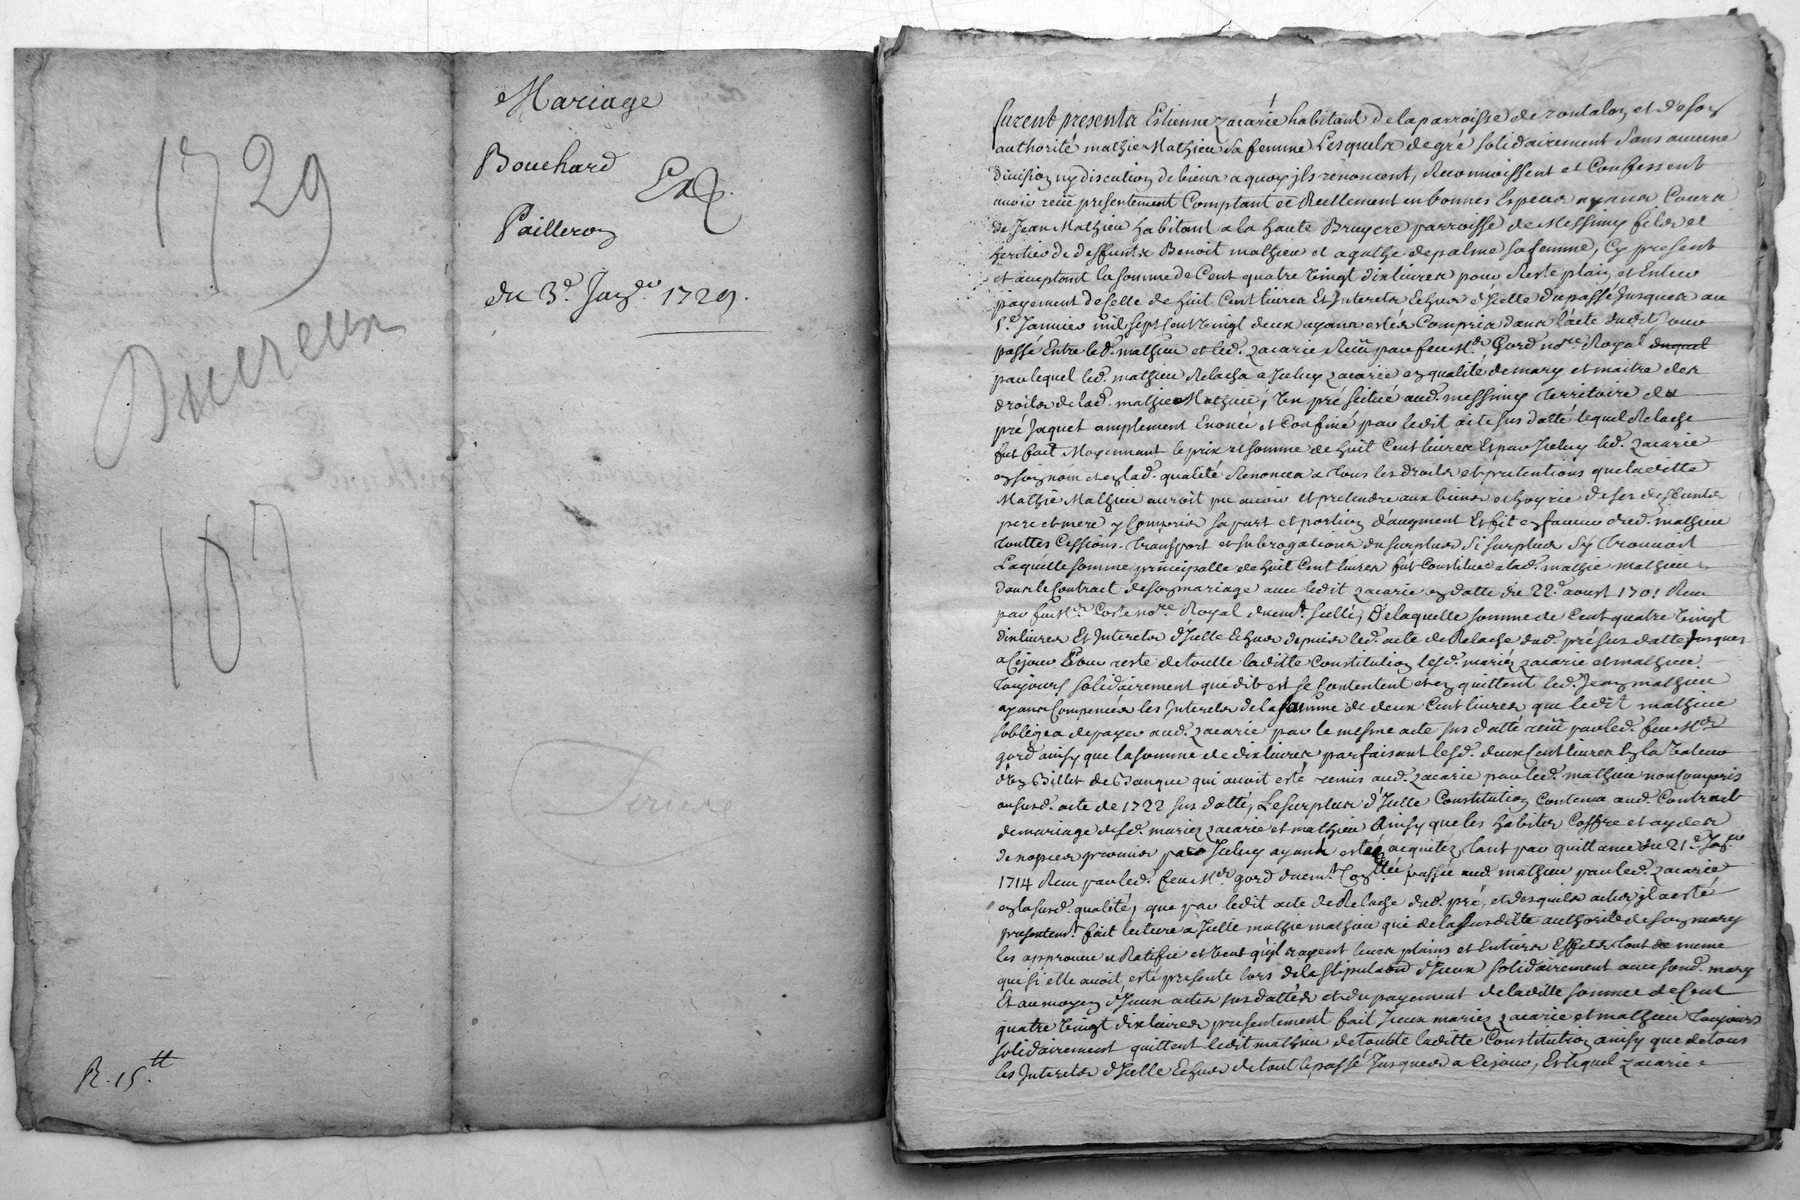 1729
107
R. 15.tt
Mariage
Bouchard
Pailleron
du 3e. Janer. 1729.
furent presents Estienne zacarie habitant de la parroisse de rontalon et de son
authorité mathie Mathieu sa femme Lesquels de gré solidairement sans aucune
division ny discution de biens a quoy ils renoncent, Reconnoissent et Confessent
avoir receu presentement Comptant et Reellement en bonnes Especes ayans Cours
de Jean Mathieu habitant a la haute Bruyere parroisse de Messimy fils et
heritier de deffunts Benoit mathieu et agathe depalme sa femme, Cy present
et acceptant la somme de Cent quatre vingt dix livres pour Reste plain et Entier
payement de Celle de huit Cent livres Et Interets Echus d'Icelle du passé Jusques au
5e Janvier mil sept cent vingt deux ayans estés Compris dans l'acte dudit Jour
passé Entre led. mathieu et led. zacarie Receu par feu Me. Gord nore. Royal duquel
par lequel led. mathieu Relacha a Iceluy zacarie en qualité de mary et maitre des
droits de lad. mathie Mathieu, Un pré scitué aud. messimy territoire du
pré Jaquet amplement Enoncé et Confiné par ledit acte sus datté lequel Relache
fut fait Moyennant le prix et somme de huit Cent livres Et par Iceluy led. zacarie
en son nom et en lad. qualité Renoncea a tous les droits et prétentions que laditte
Mathie Mathieu auroit pu avoir et prétendre aux biens et hoyrie de ses deffunts
pere et mere y Compris sa part et portion d'augment Et fit en faveur dud. mathieu
touttes Cessions. transport et subrogations du surplus si surplus s'y trouvoit
Laquelle somme principalle de huit Cent livres fut Constituée a lad. mathie mathieu
dans le Contrat de son mariage avec ledit zacarie en datte du 22e. aoust 1701 Receu
par feu Me. Coste nore Royal Delaquelle somme de Cent quatre vingt
dix livres Et Interets d'Icelle Echus depuis led. acte de Relache dud. pré sus datté Jusques
a Cejour Pour reste de toutte laditte Constitution lesd. mariez zacarie et mathieu
toujours solidairement que dit est se Contentent et en quittent led. Jean mathieu
ayans Compencés les Interets de la somme de deux Cent livres que ledit mathieu
s'obligea de payer aud. zacarie par le mesme acte sus datté receu par led. feu Me
gord ainsy que la somme de dix livres parfaisant lesd. deux Cent livres En la Valeur
d'un Billet de Banque qui avoit esté remis aud. zacarie par led. mathieu non Compris
au susd. acte de 1722 sus datté, Le surplus d'Icelle Constitution Contenu aud. Contrait
de mariage desd. mariez zacarie et mathieu Ainsy que les habits Coffre et aydes
de nopces promis par Iceluy ayant estez acquitez tant par quittance du 21e.
1714 Receu par led. feu Me gord passée aud. mathieu par led. zacarie
en la susd. qualité, que par ledit acte de Relache dud. pré, et desquels actes il a esté
presentemt. fait lecture a Icelle mathie mathieu qui de la susditte authorité de son mary
les approuve et Ratifie et veut qu'ils ayent leurs plains et Entiers Effets tout de meme
que si elle avoit esté presente lors de la stipulation d'Iceux solidairement avec sond. mary
Et au moyen d'Iceux actes sus dattés et du payement de laditte somme de Cent
quatre vingt dix livres presentement fait Iceux mariez zacarie et mathieu toujours
solidairement quittent ledit mathieu de toutte laditte Constitution ainsy que de tous
les Interets d'Icelle Echus de tout le passé Jusques a Cejour, Et lequel zacarie